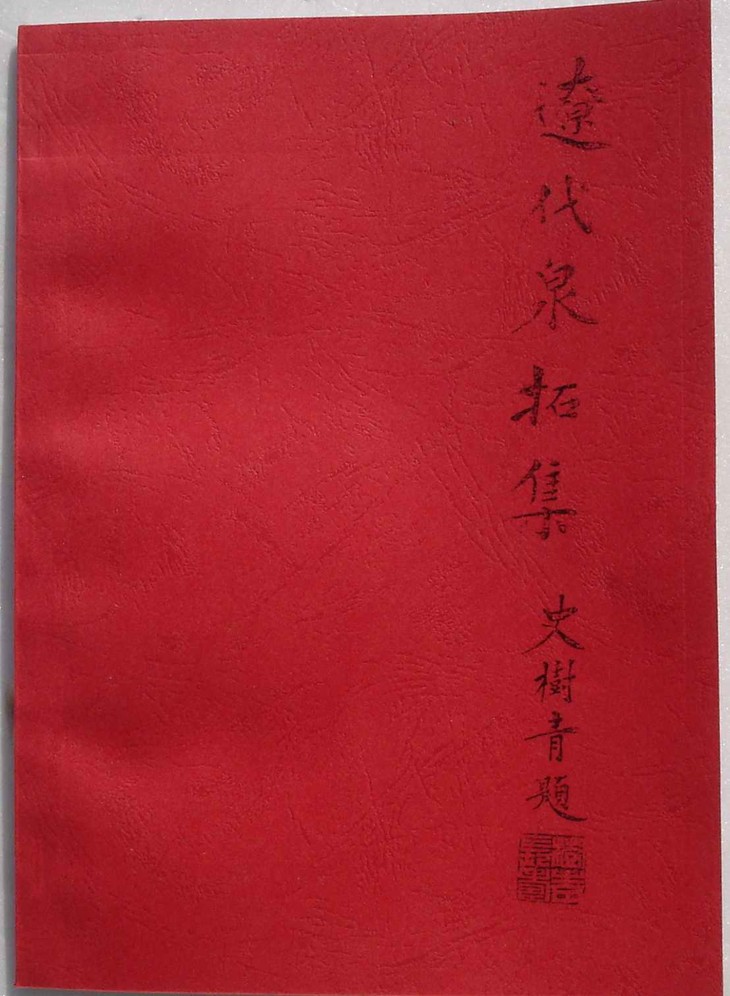 遼代泉拓集 史樹青題